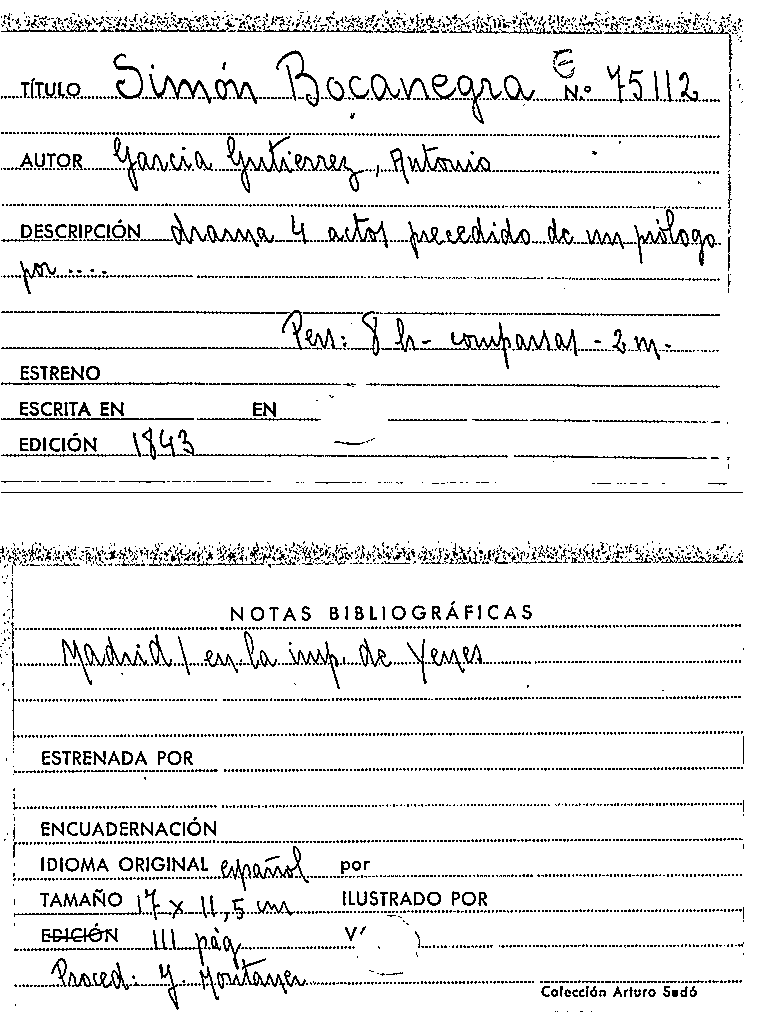 TÍTULO Simón Bocanegra E N.º 75112
AUTOR Garcia Gutierrez, Antonio
DESCRIPCIÓN drama 4 actos precedido de un prólogo
por ....
Pers: 8 h - comparsas - 2 m.
ESTRENO
ESCRITA EN EN
EDICIÓN 1843
NOTAS BIBLIOGRÁFICAS
Madrid / en la imp. de Yenes
ESTRENADA POR
ENCUADERNACIÓN
IDIOMA ORIGINAL español por
TAMAÑO 17 x 11,5 cm ILUSTRADO POR
EDICIÓN 111 pág V
Proced: Montaner
Colección Arturo Sedó